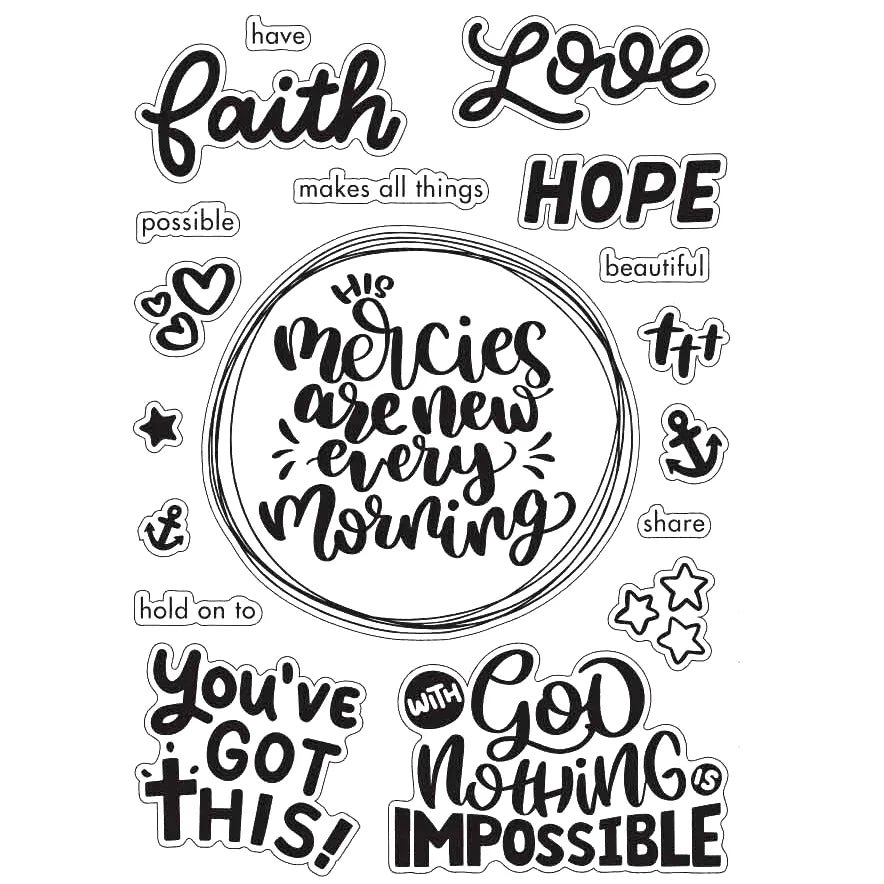 have
faith
Love
makes all things
HOPE
possible
beautiful
HIS
mercies
are new
every
morning
share
hold on to
YOU'VE
GOT
THIS!
WITH GOD
NOTHING IS
IMPOSSIBLE